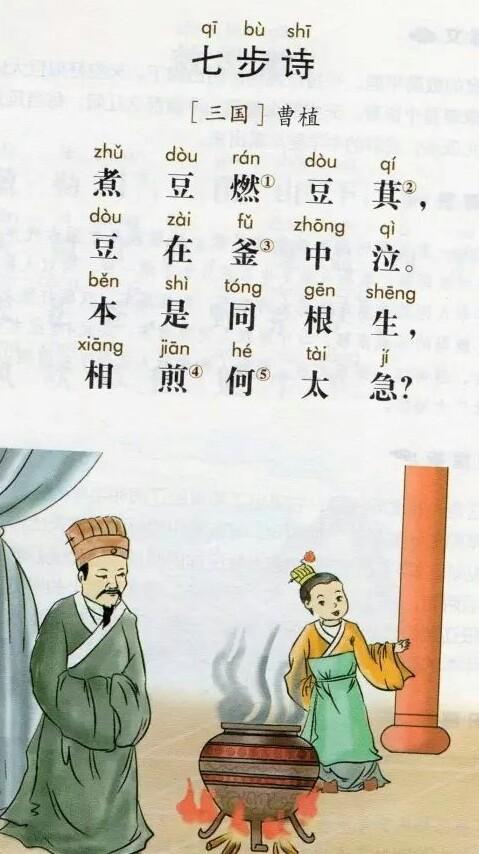 qī bù shī
七步诗
［三国］曹植
zhǔ dòu rán dòu qí
煮豆燃①豆萁②，
dòu zài fǔ zhōng qì
豆在釜③中泣。
běn shì tóng gēn shēng
本是同根生，
xiāng jiān hé tài jí
相煎④何⑤太急？